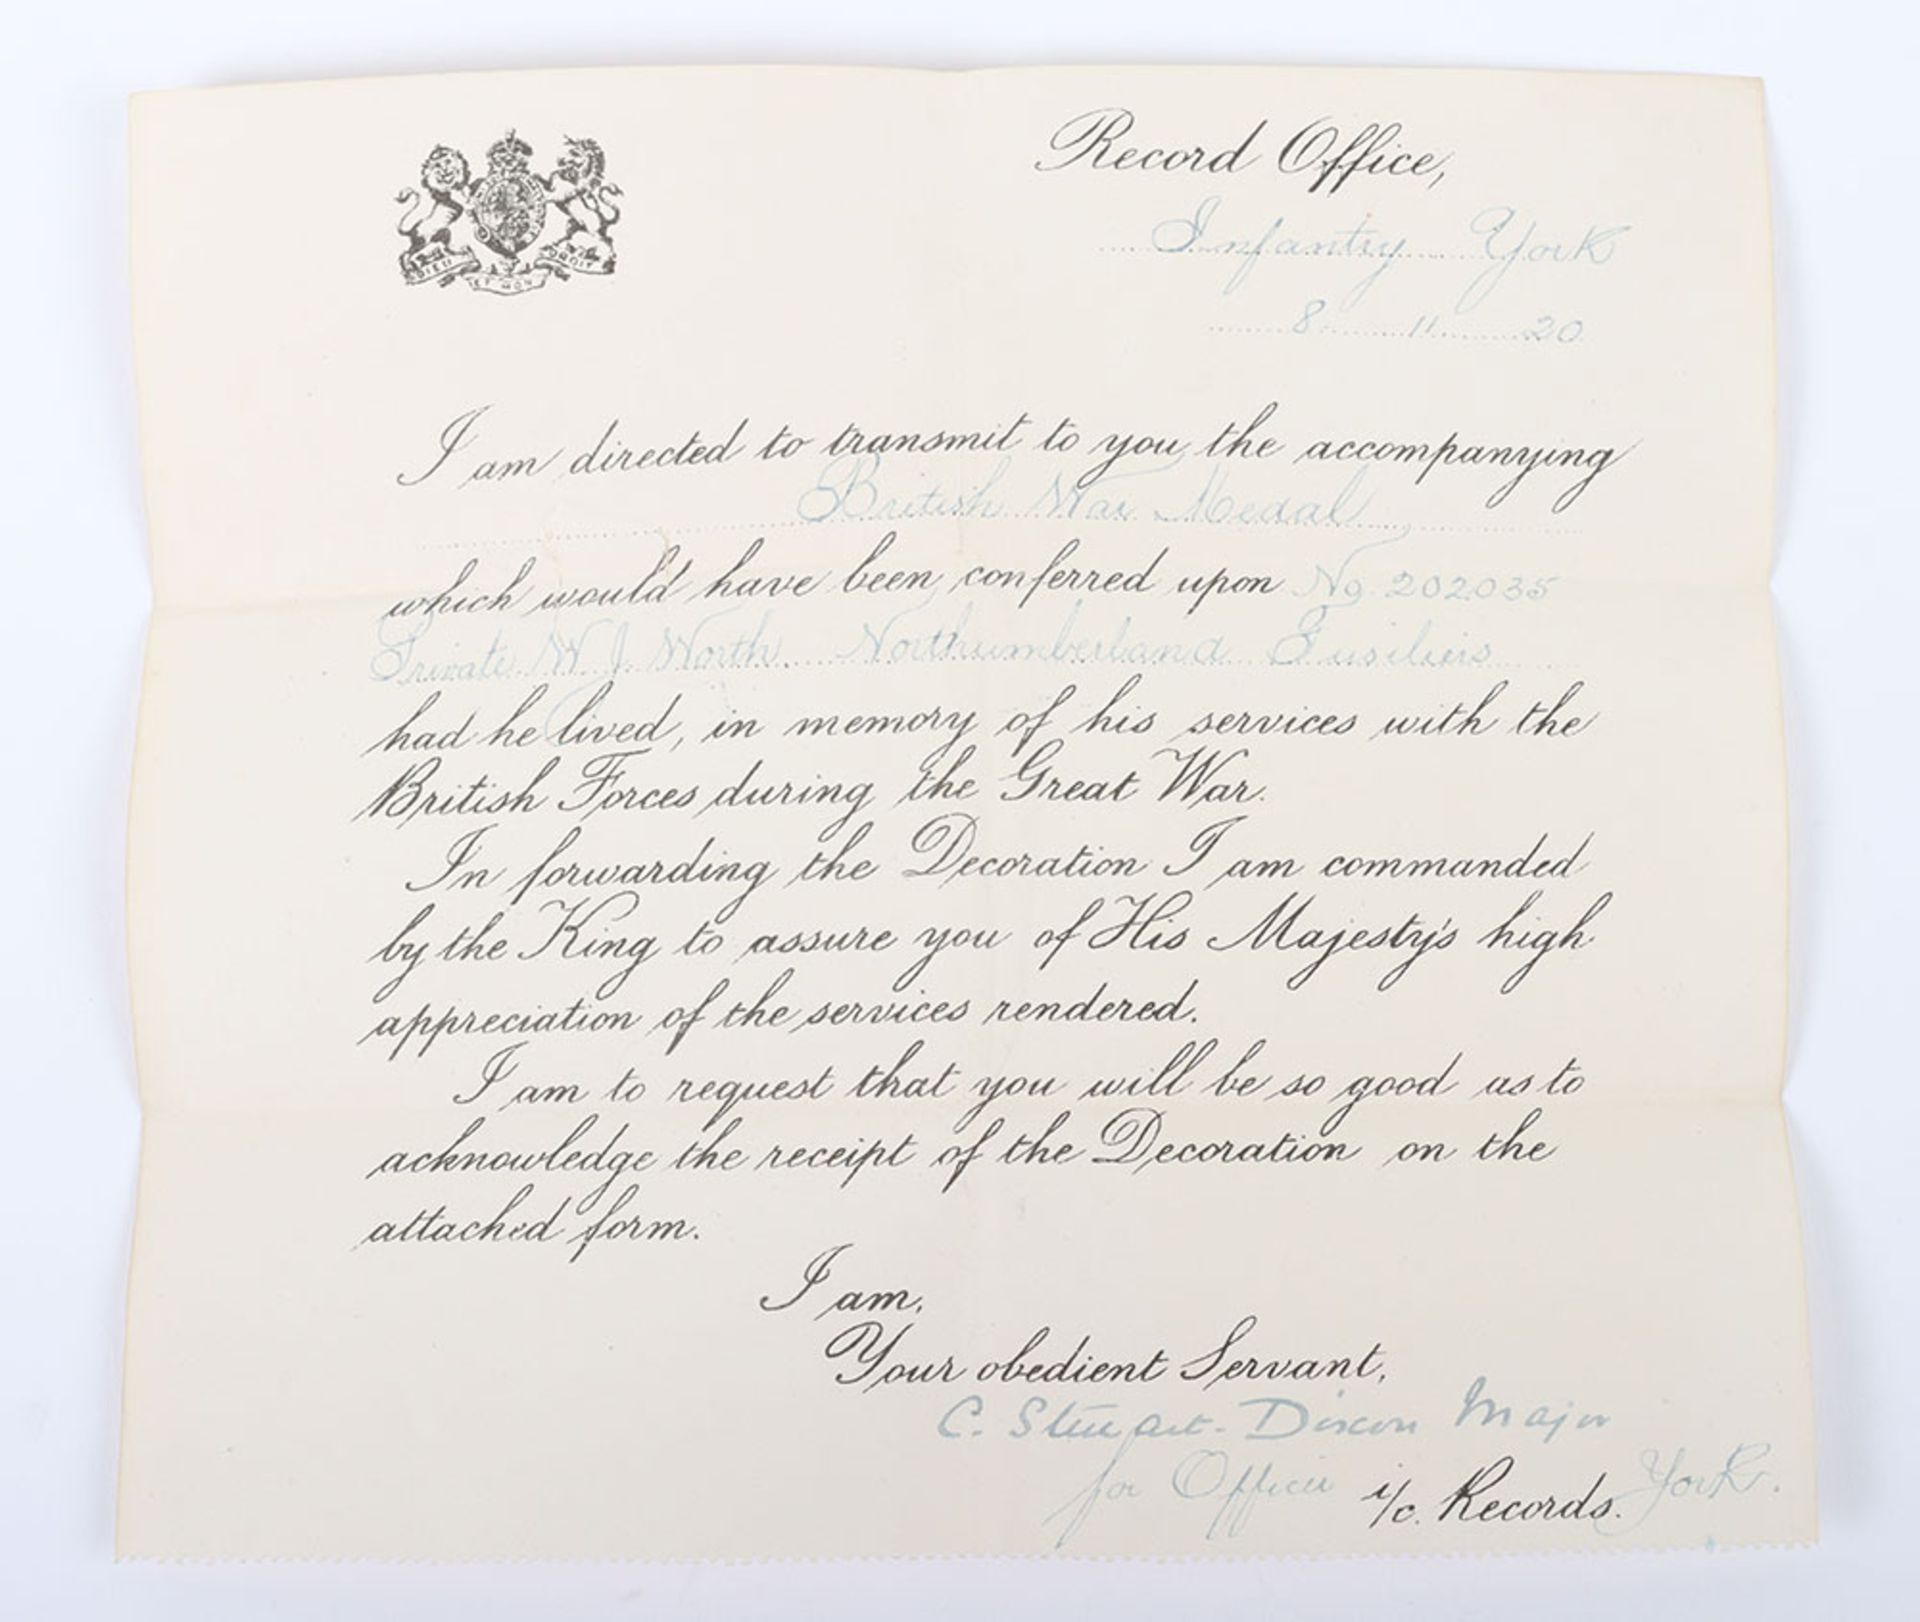 Record Office,
Infantry York
8 11 20
DIEU ET MON DROIT
I am directed to transmit to you the accompanying
British War Medal
which would have been conferred upon No. 202035
Private W J Worth Northumberland Fusiliers
had he lived, in memory of his services with the
British Forces during the Great War.
In forwarding the Decoration I am commanded
by the King to assure you of His Majesty's high
appreciation of the services rendered.
I am to request that you will be so good as to
acknowledge the receipt of the Decoration on the
attached form.
I am,
Your obedient Servant,
C. Stewart-Dixon Major
for Officer i/c. Records. York.